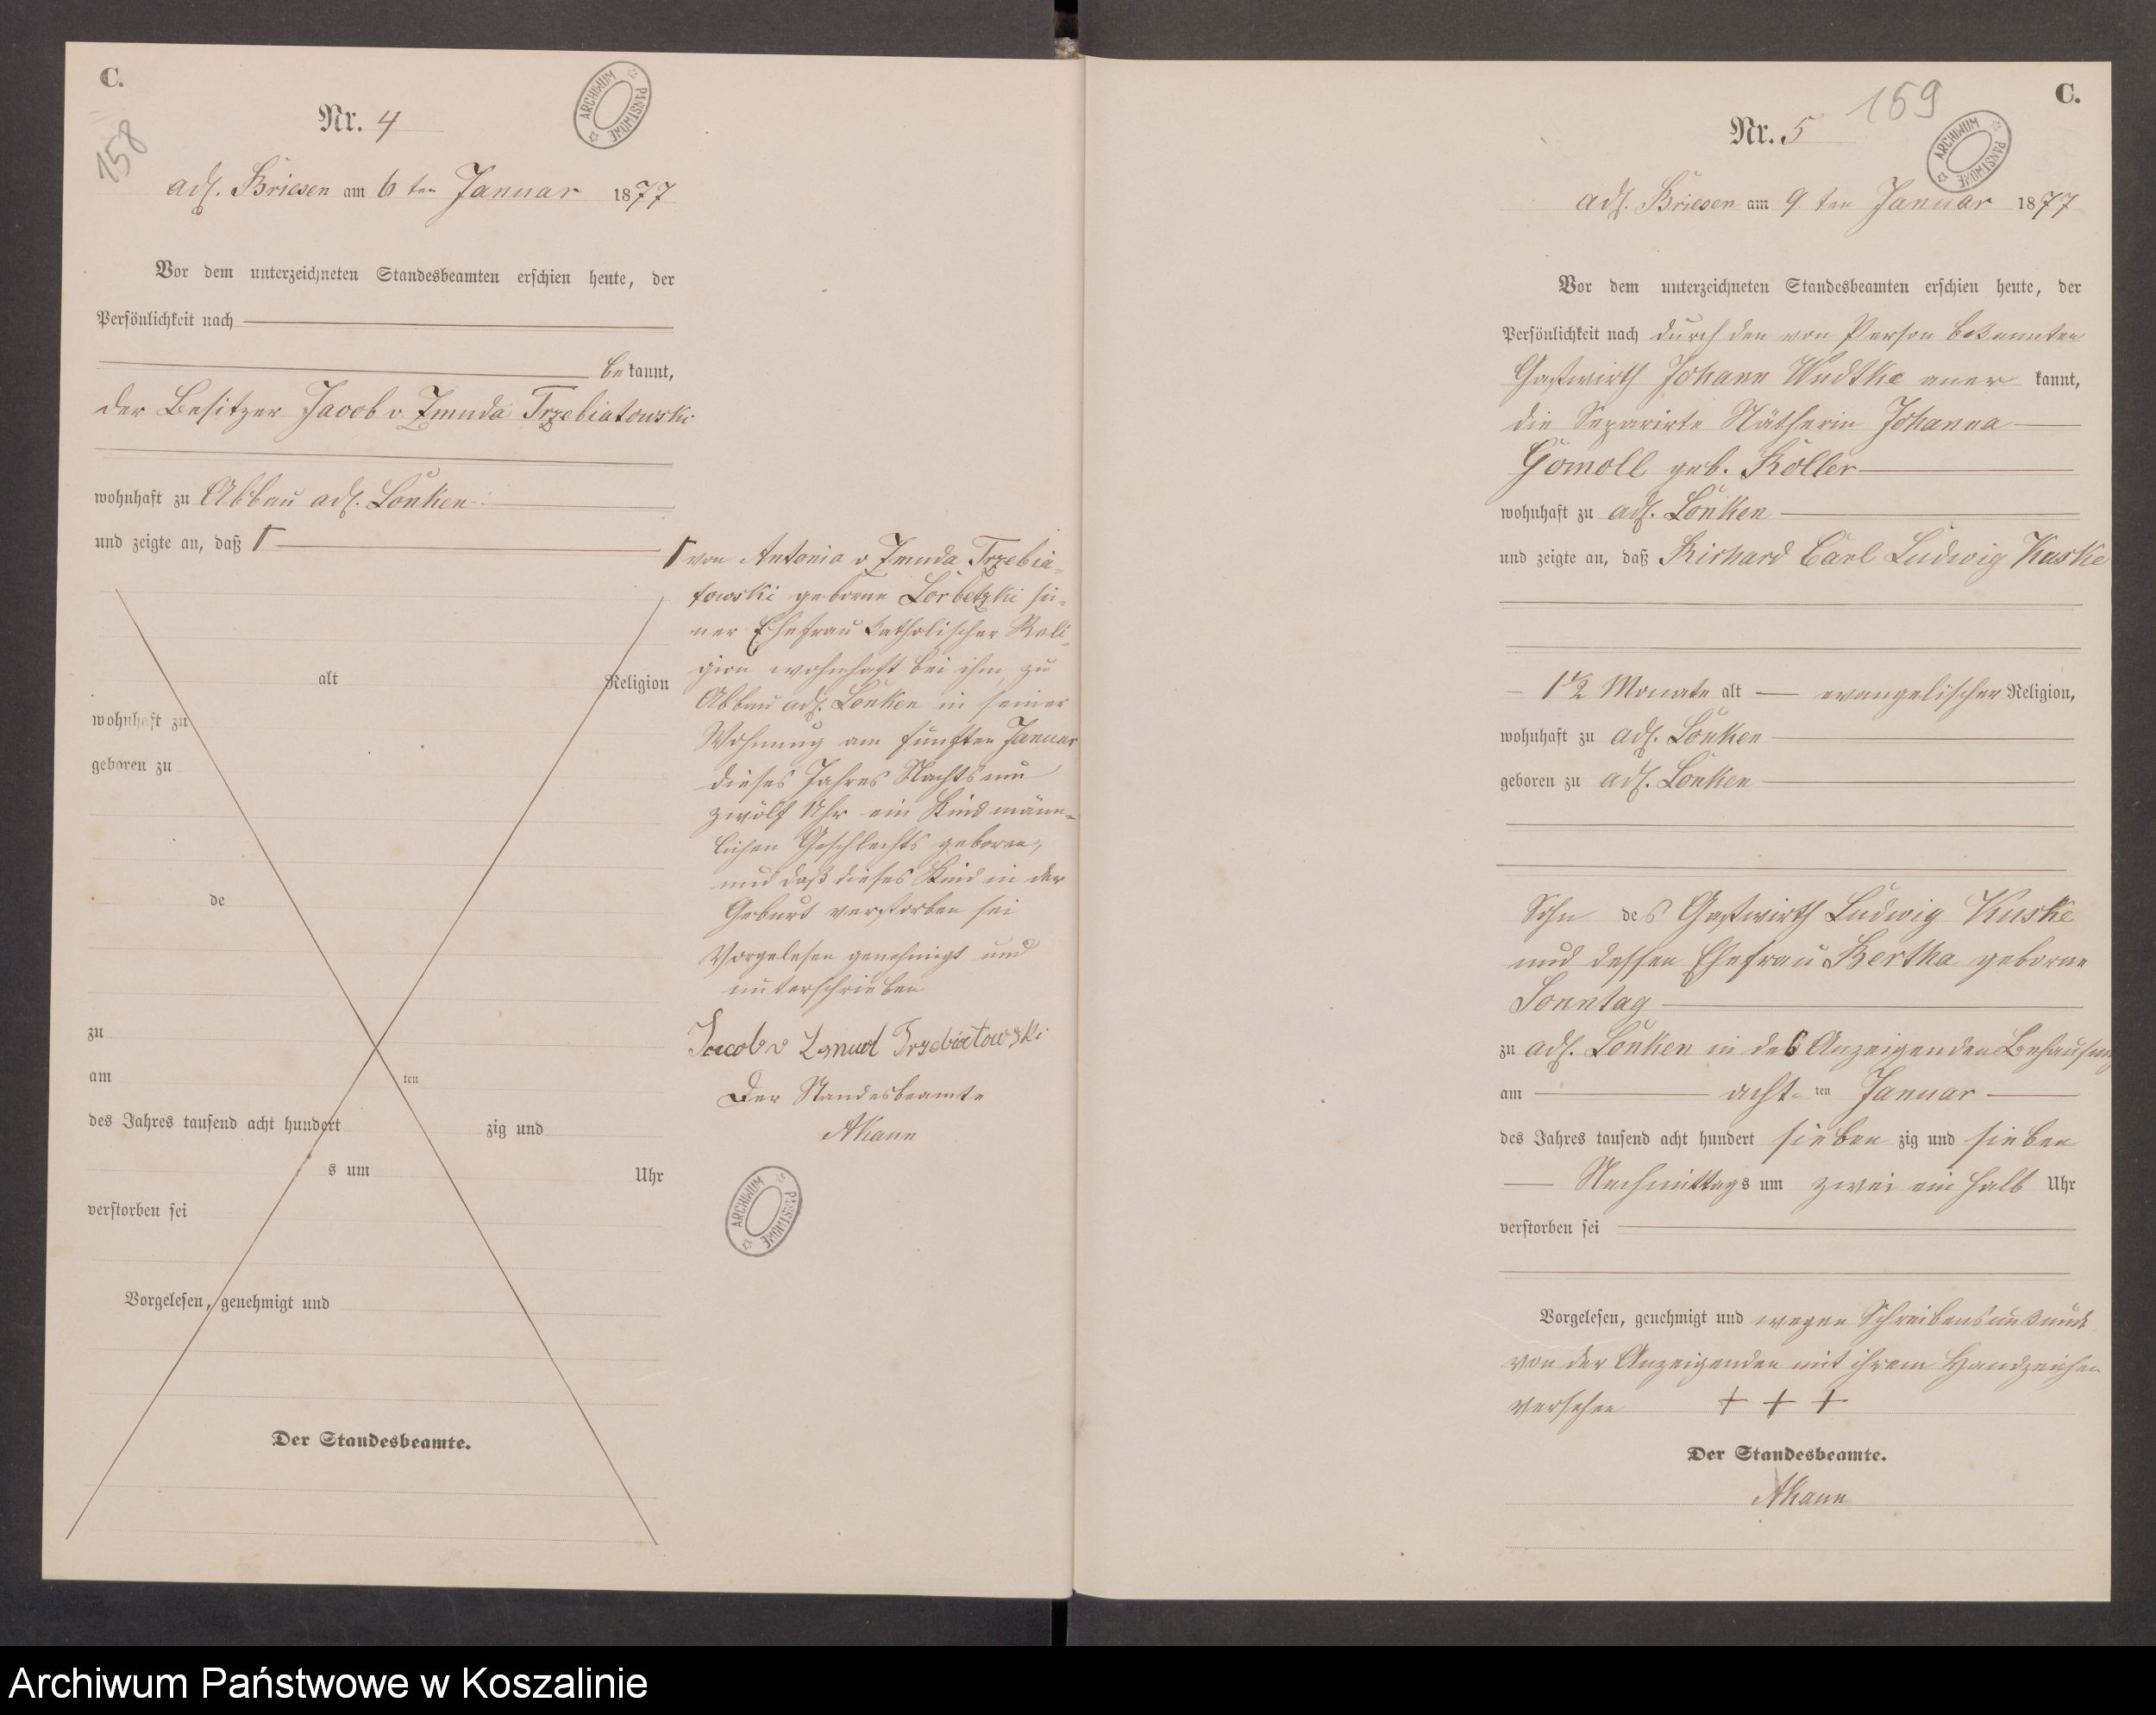 C.
158
Nr. 4
ARCHIWUM PAŃSTWOWE
adl. Briesen am 6 ten Januar 1877
Vor dem unterzeichneten Standesbeamten erschien heute, der
Persönlichkeit nach
bekannt,
der Besitzer Jacob v Zmuda Trzebiatowski
wohnhaft zu Abbau adl. Lonken
und zeigte an, daß Γ
alt Religion
wohnhaft zu
geboren zu
de
zu
am ten
des Jahres tausend acht hundert zig und
s um Uhr
verstorben sei
Vorgelesen, genehmigt und
Der Standesbeamte.
Γ von Antonia v Zmuda Trzebia-
towski geborne Lorbetzki sei-
ner Ehefrau katholischer Reli-
gion wohnhaft bei ihm, zu
Abbau adl. Lonken in seiner
Wohnung am fünften Januar
dieses Jahres Nachts um
zwölf Uhr ein Kind männ-
lichen Geschlechts geboren,
und daß dieses Kind in der
Geburt verstorben sei
Vorgelesen genehmigt und
unterschrieben
Jacob v Trzebiatowski
Der Standesbeamte
ARCHIWUM PAŃSTWOWE
C.
159
Nr. 5
ARCHIWUM PAŃSTWOWE
adl. Briesen am 9 ten Januar 1877
Vor dem unterzeichneten Standesbeamten erschien heute, der
Persönlichkeit nach durch den von Person bekannten
Gastwirth Johann Wudtke aner kannt,
die Separirte Nätherin Johanna
Gomoll geb. Koller
wohnhaft zu adl. Lonken
und zeigte an, daß Richard Carl Ludwig Kuske
1 1/2 Monate alt evangelischer Religion,
wohnhaft zu adl. Lonken
geboren zu adl. Lonken
Sohn des Gastwirth Ludwig Kuske
und dessen Ehefrau Bertha geborne
Sonntag
zu adl. Lonken in des Anzeigenden Behausung
am acht- ten Januar
des Jahres tausend acht hundert sieben zig und sieben
Nachmittags um zwei ein halb Uhr
verstorben sei
Vorgelesen, genehmigt und wegen Schreibensunkunde
von der Anzeigenden mit ihrem Handzeichen
versehen + + +
Der Standesbeamte.
Archiwum Państwowe w Koszalinie